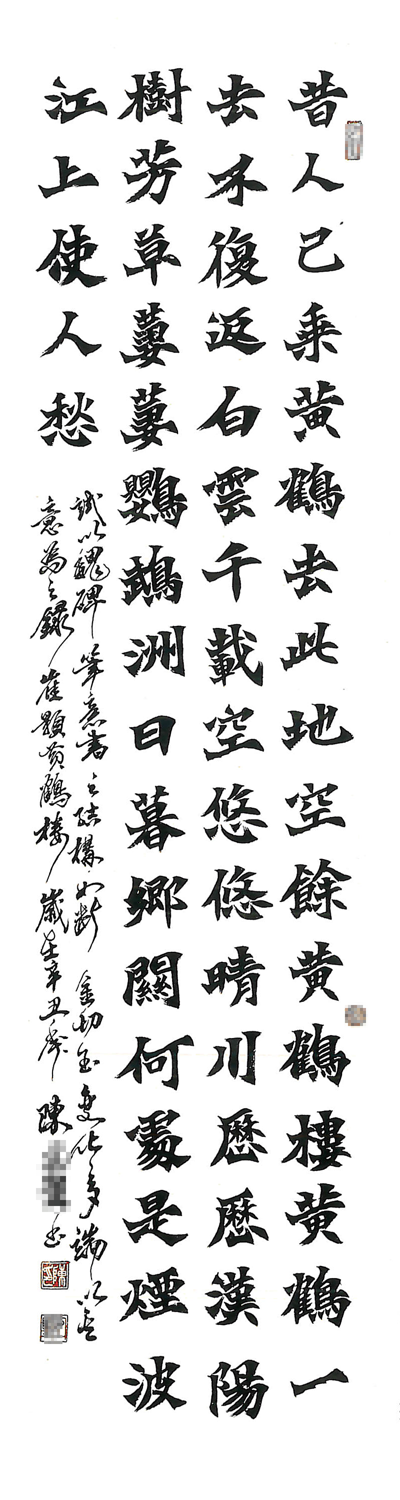 昔人已乘黄鶴去此地空餘黄鶴樓黄鶴一
去不復返白雲千載空悠悠晴川歷歷漢陽
樹芳草萋萋鸚鵡洲日暮鄉關何處是煙波
江上使人愁
試以魏碑筆意書之結構如斷金切玉變化多端以盡
意為之錄崔顥黄鶴樓歲在辛丑秋陳書